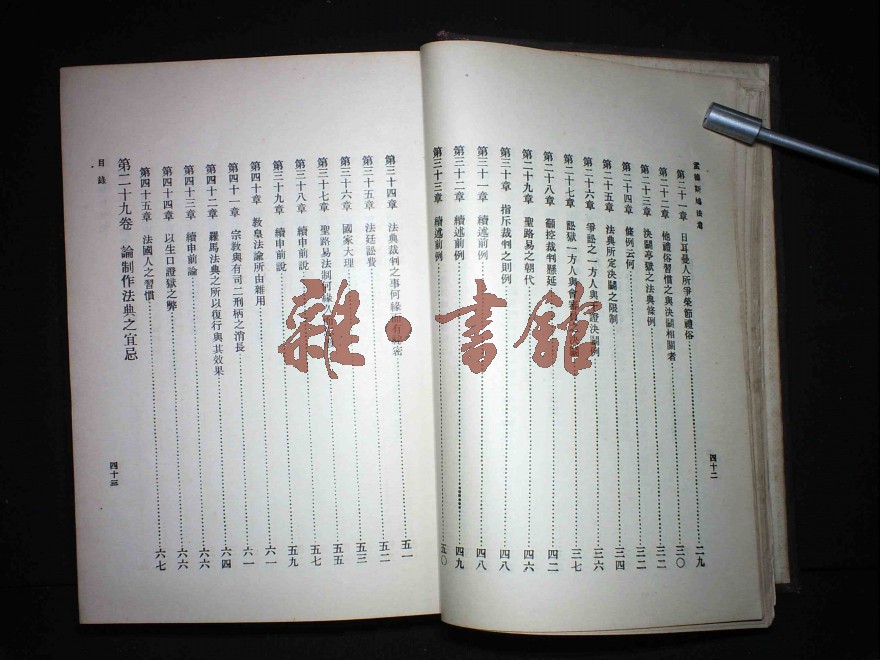 孟德斯鳩法意
第二十一章　日耳曼人所爭榮節禮俗　二九
第二十二章　他禮俗習慣之與決鬭相關者　三〇
第二十三章　決鬭亭獄之法典條例　三二
第二十四章　條例云何　三二
第二十五章　法典所定決鬭之限制　三四
第二十六章　爭訟之一方人與　證決鬭例　三六
第二十七章　訟獄一方人與會　三七
第二十八章　籲控裁判懸延　四二
第二十九章　聖路易之朝代　四六
第三十章　指斥裁判之則例　四八
第三十一章　續述前例　四八
第三十二章　續述前例　四九
第三十三章　續述前例　五〇
四十二
第三十四章　法典裁判之事何緣而有祕密　五一
第三十五章　法廷訟費　五二
第三十六章　國家大理　五三
第三十七章　聖路易法制何緣　五五
第三十八章　續申前說　五七
第三十九章　續申前說　五九
第四十章　教皇法論所由雜用　六一
第四十一章　宗教與有司二刑柄之消長　六一
第四十二章　羅馬法典之所以復行與其效果　六四
第四十三章　續申前論　六六
第四十四章　以生口證獄之弊　六六
第四十五章　法國人之習慣　六七
第二十九卷　論制作法典之宜忌
目錄
四十三
雜·書館